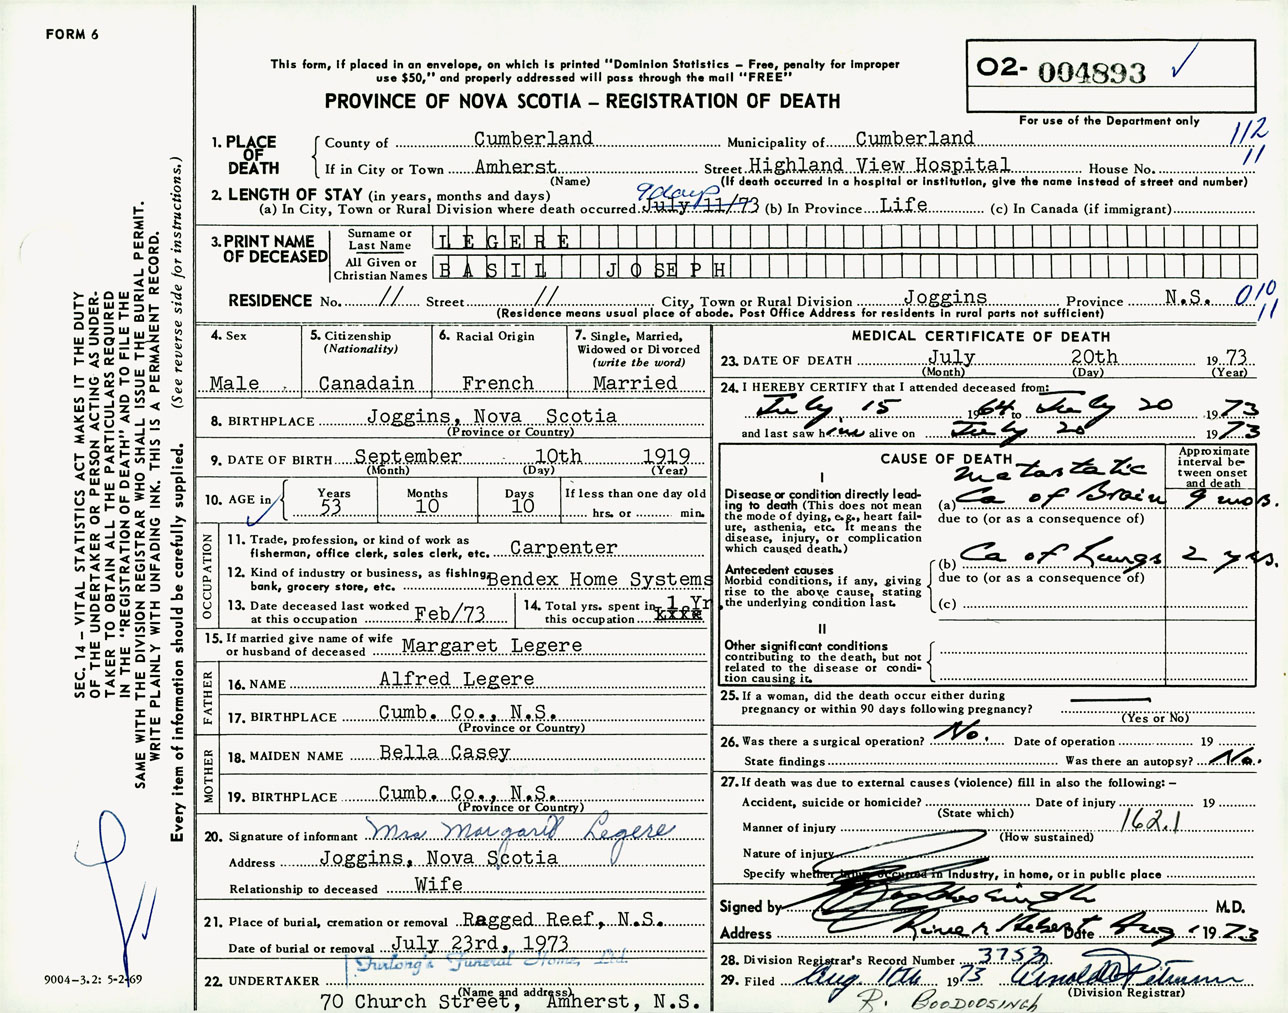 FORM 6
This form, if placed in an envelope, on which is printed "Dominion Statistics – Free, penalty for improper
use $50," and properly addressed will pass through the mail "FREE"
PROVINCE OF NOVA SCOTIA – REGISTRATION OF DEATH
02- 004893 ✓
For use of the Department only
112
11
1. PLACE OF DEATH
County of Cumberland Municipality of Cumberland
If in City or Town Amherst Street Highland View Hospital House No.
(Name) (If death occurred in a hospital or institution, give the name instead of street and number)
2. LENGTH OF STAY (in years, months and days)
9 days
(a) In City, Town or Rural Division where death occurred July 11/73 (b) In Province Life (c) In Canada (if immigrant)
3. PRINT NAME OF DECEASED
Surname or Last Name LEGERE
All Given or Christian Names BASIL JOSEPH
RESIDENCE No. // Street // City, Town or Rural Division Joggins Province N.S. 010
11
(Residence means usual place of abode. Post Office Address for residents in rural parts not sufficient)
4. Sex
Male
5. Citizenship
(Nationality)
Canadain
6. Racial Origin
French
7. Single, Married,
Widowed or Divorced
(write the word)
Married
8. BIRTHPLACE Joggins, Nova Scotia
(Province or Country)
9. DATE OF BIRTH September 10th 1919
(Month) (Day) (Year)
10. AGE in
Years Months Days If less than one day old
53 10 10 hrs. or min.
OCCUPATION
11. Trade, profession, or kind of work as
fisherman, office clerk, sales clerk, etc. Carpenter
12. Kind of industry or business, as fishing,
bank, grocery store, etc. Bendex Home Systems
13. Date deceased last worked
at this occupation Feb/73
14. Total yrs. spent in 1 Yr
this occupation
15. If married give name of wife
or husband of deceased Margaret Legere
FATHER
16. NAME Alfred Legere
17. BIRTHPLACE Cumb. Co., N.S.
(Province or Country)
MOTHER
18. MAIDEN NAME Bella Casey
19. BIRTHPLACE Cumb. Co., N.S.
(Province or Country)
20. Signature of informant Mrs Margaret Legere
Address Joggins, Nova Scotia
Relationship to deceased Wife
21. Place of burial, cremation or removal Ragged Reef, N.S.
Date of burial or removal July 23rd, 1973
Furlong's Funeral Home, Ltd.
22. UNDERTAKER
(Name and address)
70 Church Street, Amherst, N.S.
MEDICAL CERTIFICATE OF DEATH
23. DATE OF DEATH July 20th 1973
(Month) (Day) (Year)
24. I HEREBY CERTIFY that I attended deceased from:
July 15 1964 to July 20 1973
and last saw him alive on July 20 1973
CAUSE OF DEATH
Approximate
interval be-
tween onset
and death
I
Disease or condition directly lead-
ing to death (This does not mean
the mode of dying, e.g., heart fail-
ure, asthenia, etc. It means the
disease, injury, or complication
which caused death.)
Metastatic
(a) Ca of Brain 9 mos.
due to (or as a consequence of)
Antecedent causes
Morbid conditions, if any, giving
rise to the above cause, stating
the underlying condition last.
(b) Ca of Lungs 2 yrs.
due to (or as a consequence of)
(c)
II
Other significant conditions
contributing to the death, but not
related to the disease or condi-
tion causing it.
25. If a woman, did the death occur either during
pregnancy or within 90 days following pregnancy?
(Yes or No)
26. Was there a surgical operation? No. Date of operation 19
State findings Was there an autopsy? No.
27. If death was due to external causes (violence) fill in also the following: –
Accident, suicide or homicide? Date of injury 19
(State which)
Manner of injury 162.1
(How sustained)
Nature of injury
Specify whether injury occurred in industry, in home, or in public place
Signed by M.D.
Address River Hebert Date Aug 1 1973
28. Division Registrar's Record Number 3753
29. Filed Aug. 10th 1973
(Division Registrar)
R. BOODOOSINGH
SEC. 14 – VITAL STATISTICS ACT MAKES IT THE DUTY
OF THE UNDERTAKER OR PERSON ACTING AS UNDER-
TAKER TO OBTAIN ALL THE PARTICULARS REQUIRED
IN THE "REGISTRATION OF DEATH" AND TO FILE THE
SAME WITH THE DIVISION REGISTRAR WHO SHALL ISSUE THE BURIAL PERMIT.
WRITE PLAINLY WITH UNFADING INK. THIS IS A PERMANENT RECORD.
Every item of information should be carefully supplied. (See reverse side for instructions.)
9004-3.2: 5-2-69